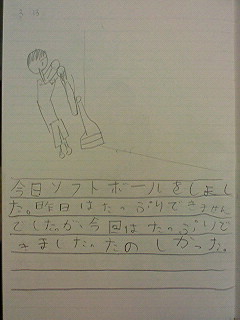 今日ソフトボールをしまし
た。昨日はたっぷりできません
でしたが、今回はたっぷりで
きました。たのしかった。